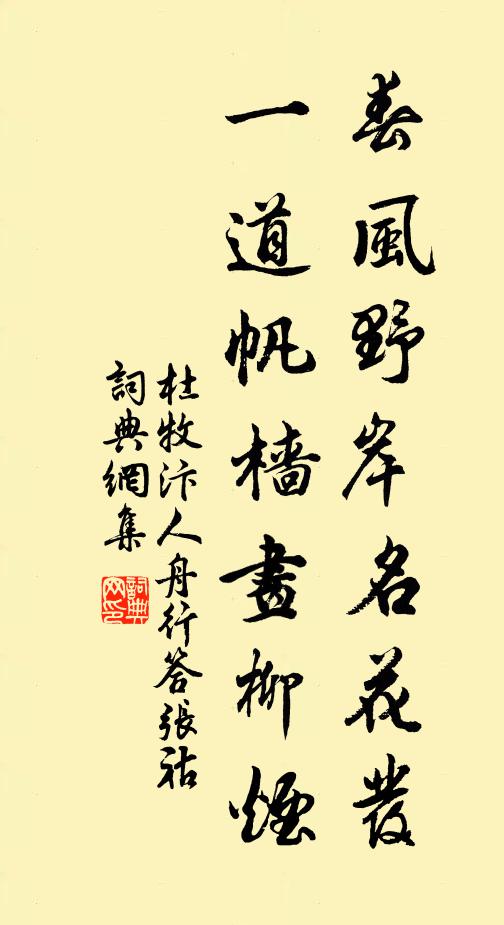 春風野岸名花發
一道帆檣畫柳煙
杜牧汴人舟行答張祜
詞典網集
詞典
网印